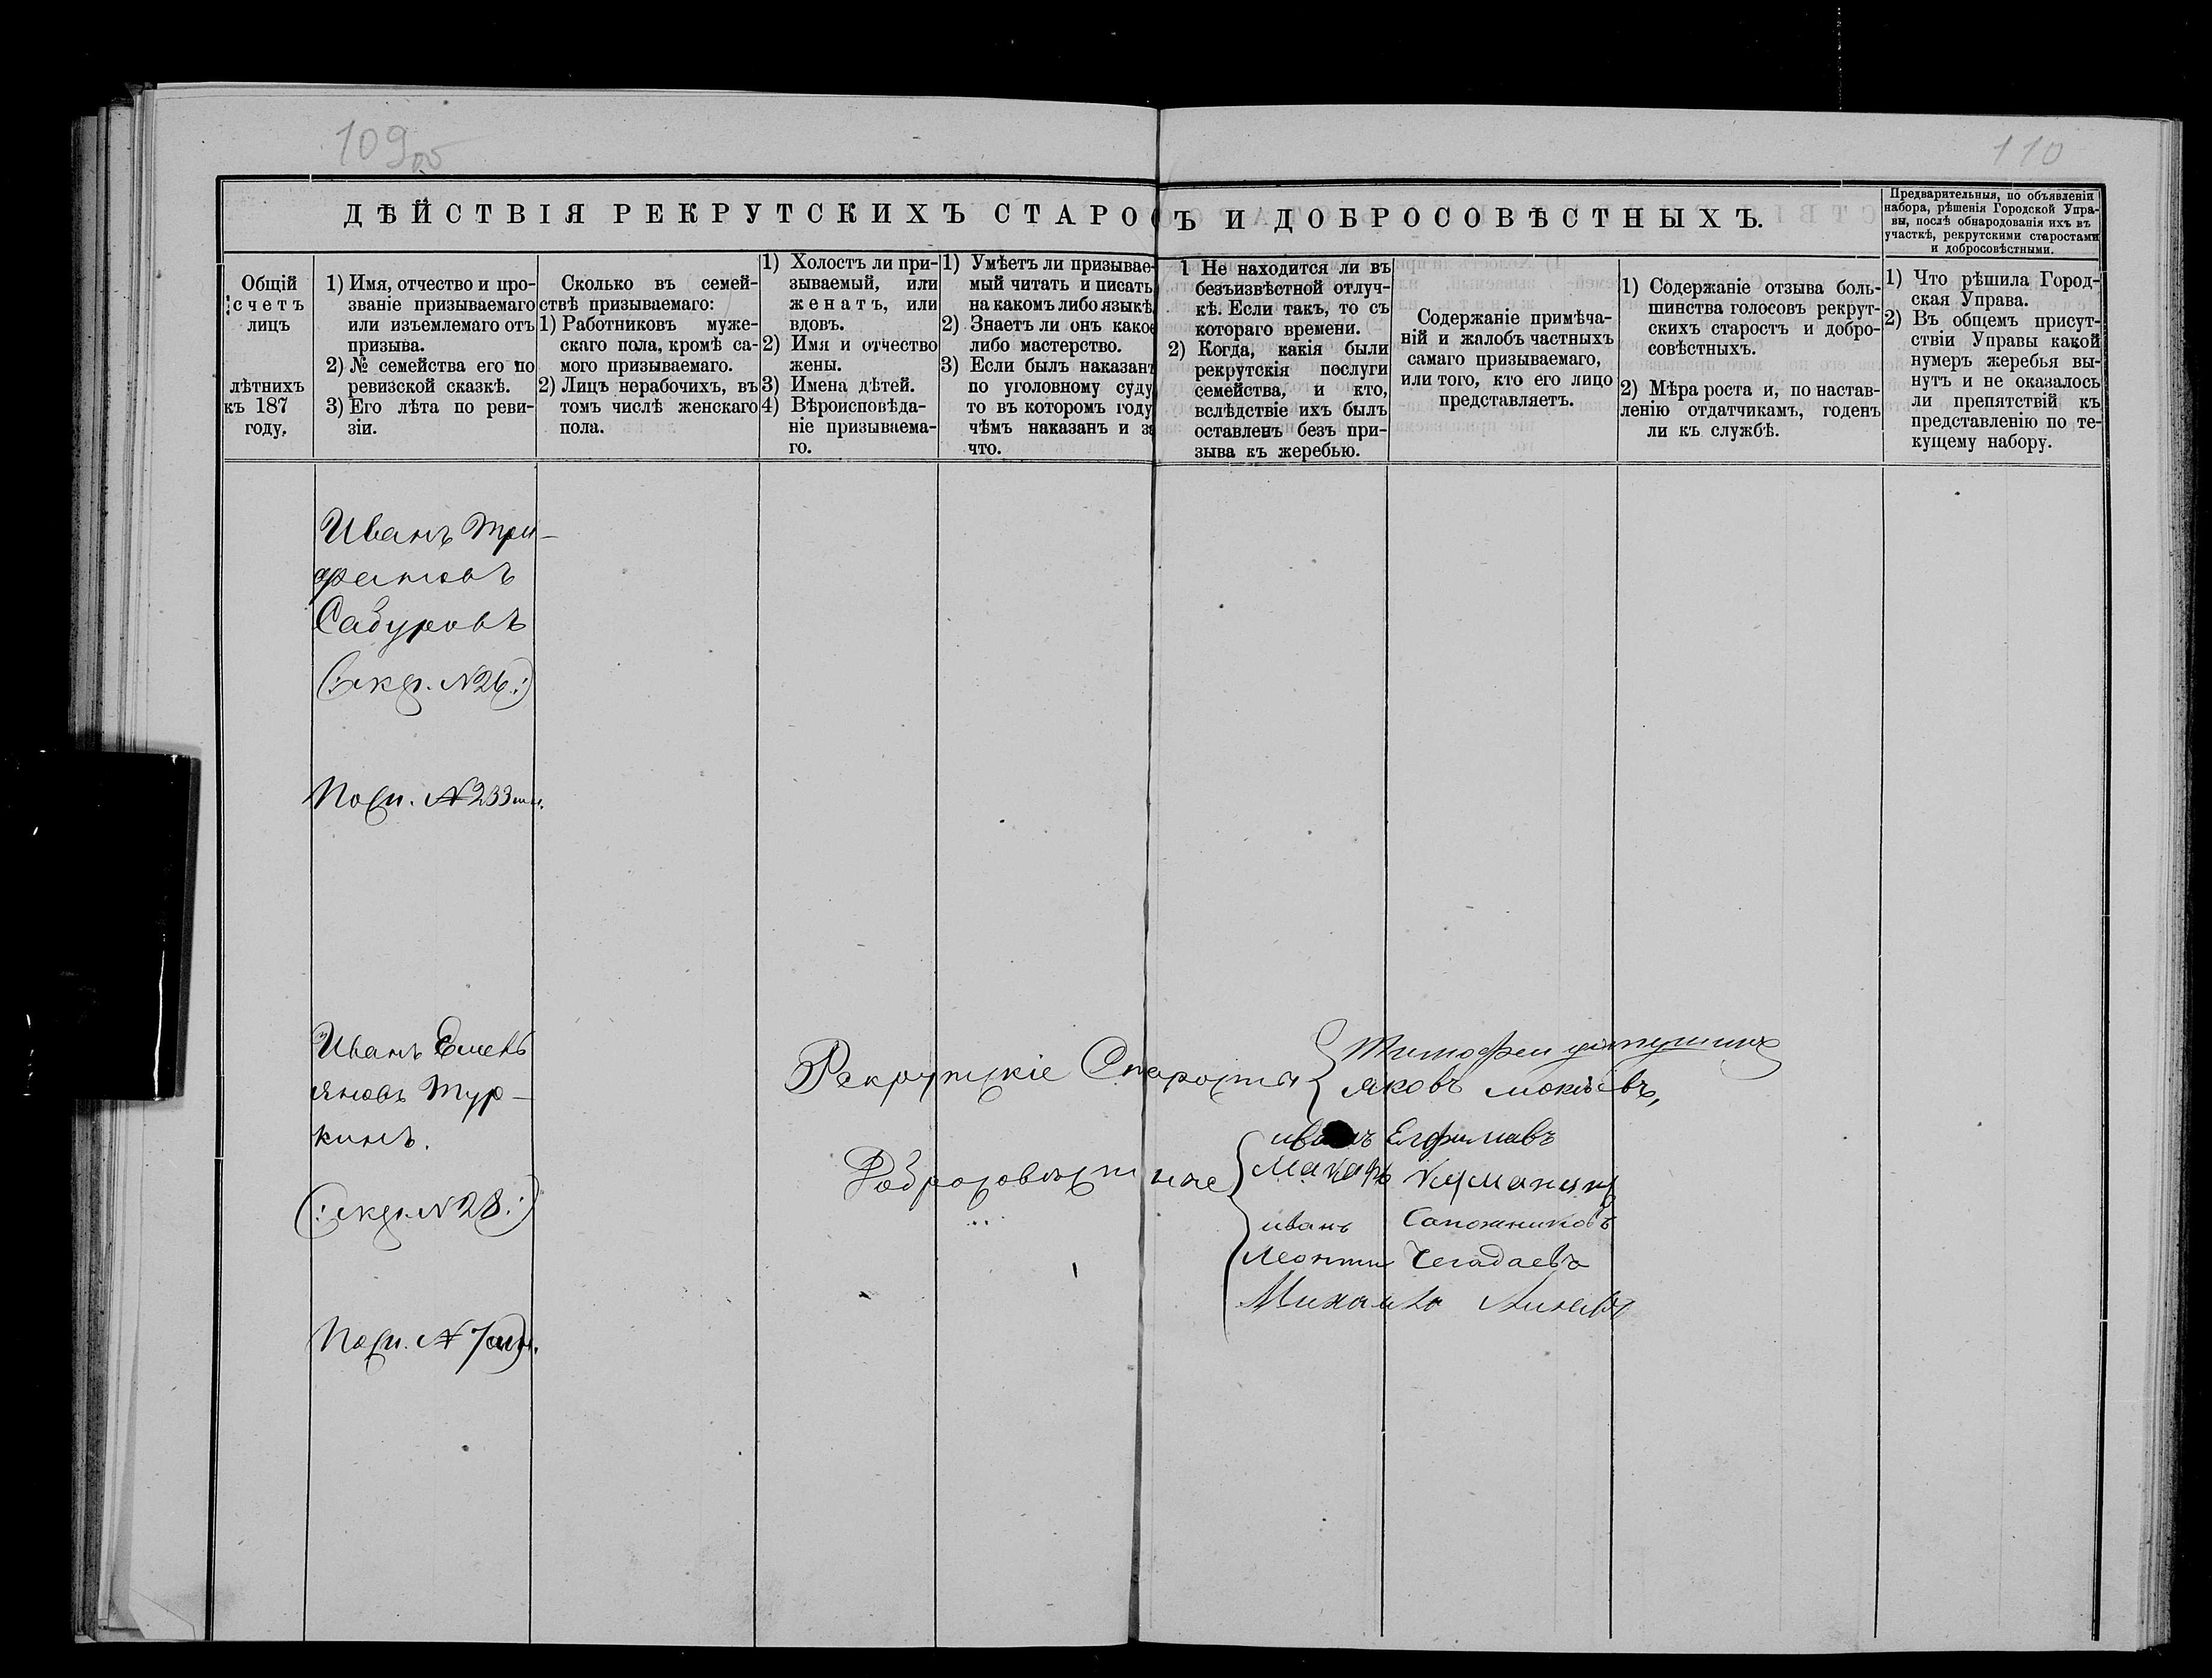 109об
110
ДѢЙСТВІЯ РЕКРУТСКИХЪ СТАРОСЪ И ДОБРОСОВѢСТНЫХЪ.
Предварительныя, по объявленіи
набора, рѣшенія Городской Упра-
вы, послѣ обнародованія ихъ въ
участкѣ, рекрутскими старостами
и добросовѣстными.
Общій
счетъ
лицъ
лѣтнихъ
къ 187
году.
1) Имя, отчество и про-
званіе призываемаго
или изъемлемаго отъ
призыва.
2) № семейства его по
ревизской сказкѣ.
3) Его лѣта по реви-
зіи.
Сколько въ семей-
ствѣ призываемаго:
1) Работниковъ муже-
скаго пола, кромѣ са-
мого призываемаго.
2) Лицъ нерабочихъ, въ
томъ числѣ женскаго
пола.
1) Холостъ ли при-
зываемый, или
женатъ, или
вдовъ.
2) Имя и отчество
жены.
3) Имена дѣтей.
4) Вѣроисповѣда-
ніе призываема-
го.
1) Умѣетъ ли призывае-
мый читать и писать
на какомъ либо языкѣ
2) Знаетъ ли онъ какое
либо мастерство.
3) Если былъ наказанъ
по уголовному суду
то въ которомъ году
чѣмъ наказанъ и за
что.
1 Не находится ли въ
безъизвѣстной отлуч-
кѣ. Если такъ, то съ
котораго времени.
2) Когда, какія были
рекрутскія послуги
семейства, и кто,
вслѣдствіе ихъ былъ
оставленъ безъ при-
зыва къ жеребью.
Содержаніе примѣча-
ній и жалобъ частныхъ
самаго призываемаго,
или того, кто его лицо
представляетъ.
1) Содержаніе отзыва боль-
шинства голосовъ рекрут-
скихъ старостъ и добро-
совѣстныхъ.
2) Мѣра роста и, по настав-
ленію отдатчикамъ, годенъ
ли къ службѣ.
1) Что рѣшила Город-
ская Управа.
2) Въ общемъ присут-
ствіи Управы какой
нумеръ жеребья вы-
нутъ и не оказалось
ли препятствій къ
представленію по те-
кущему набору.
Иванъ Три-
фановъ
Сабуровъ
N26:)
N233
Иванъ Емель
яновъ Тур-
кинъ.
N28:)
N 7
Рекрутскіе Старосты
Тимофеи
яковъ мокіевъ,
Добросовѣстные
иванъ Елфимавъ
Макаръ Куманинъ
иванъ Сапожниковъ
Леонти Чегадаевъ
Михаила